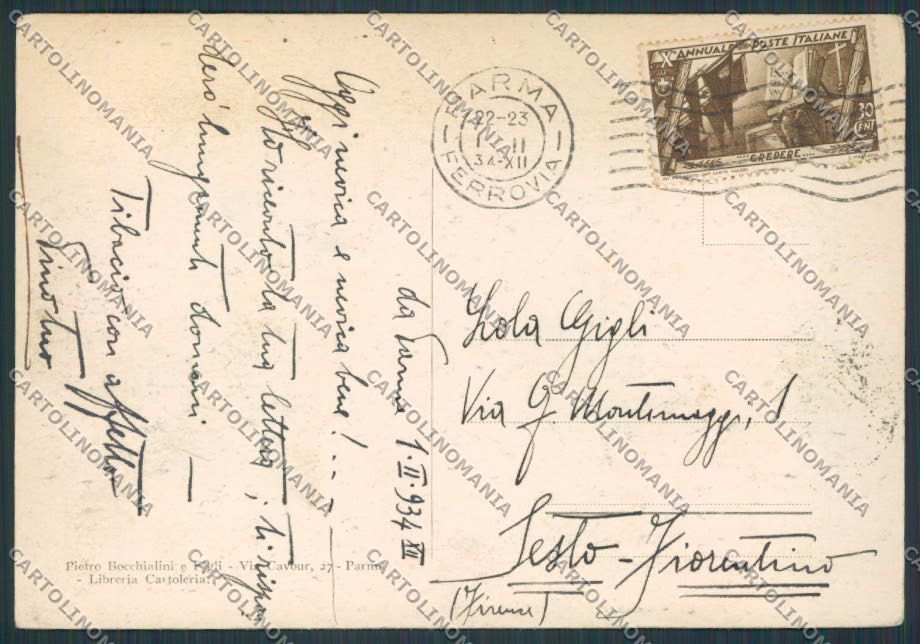 da Parma 1·II·934 XII
Oggi nevica e nevica bene!...
Ho ricevuto la tua lettera, ti
lungamente domani. —
Ti bacio con affetto
tuo
Pietro Bocchialini e Figli - Via Cavour, 27 - Parma
- Libreria Cartoleria.
PARMA
22-23
1 · II
34-XII
FERROVIA
X° ANNUALE POSTE ITALIANE
30
CENT
CREDERE....
Lola Gigli
Via G. Montemaggi, 1
Sesto-Fiorentino
(Firenze)
CARTOLINOMANIA